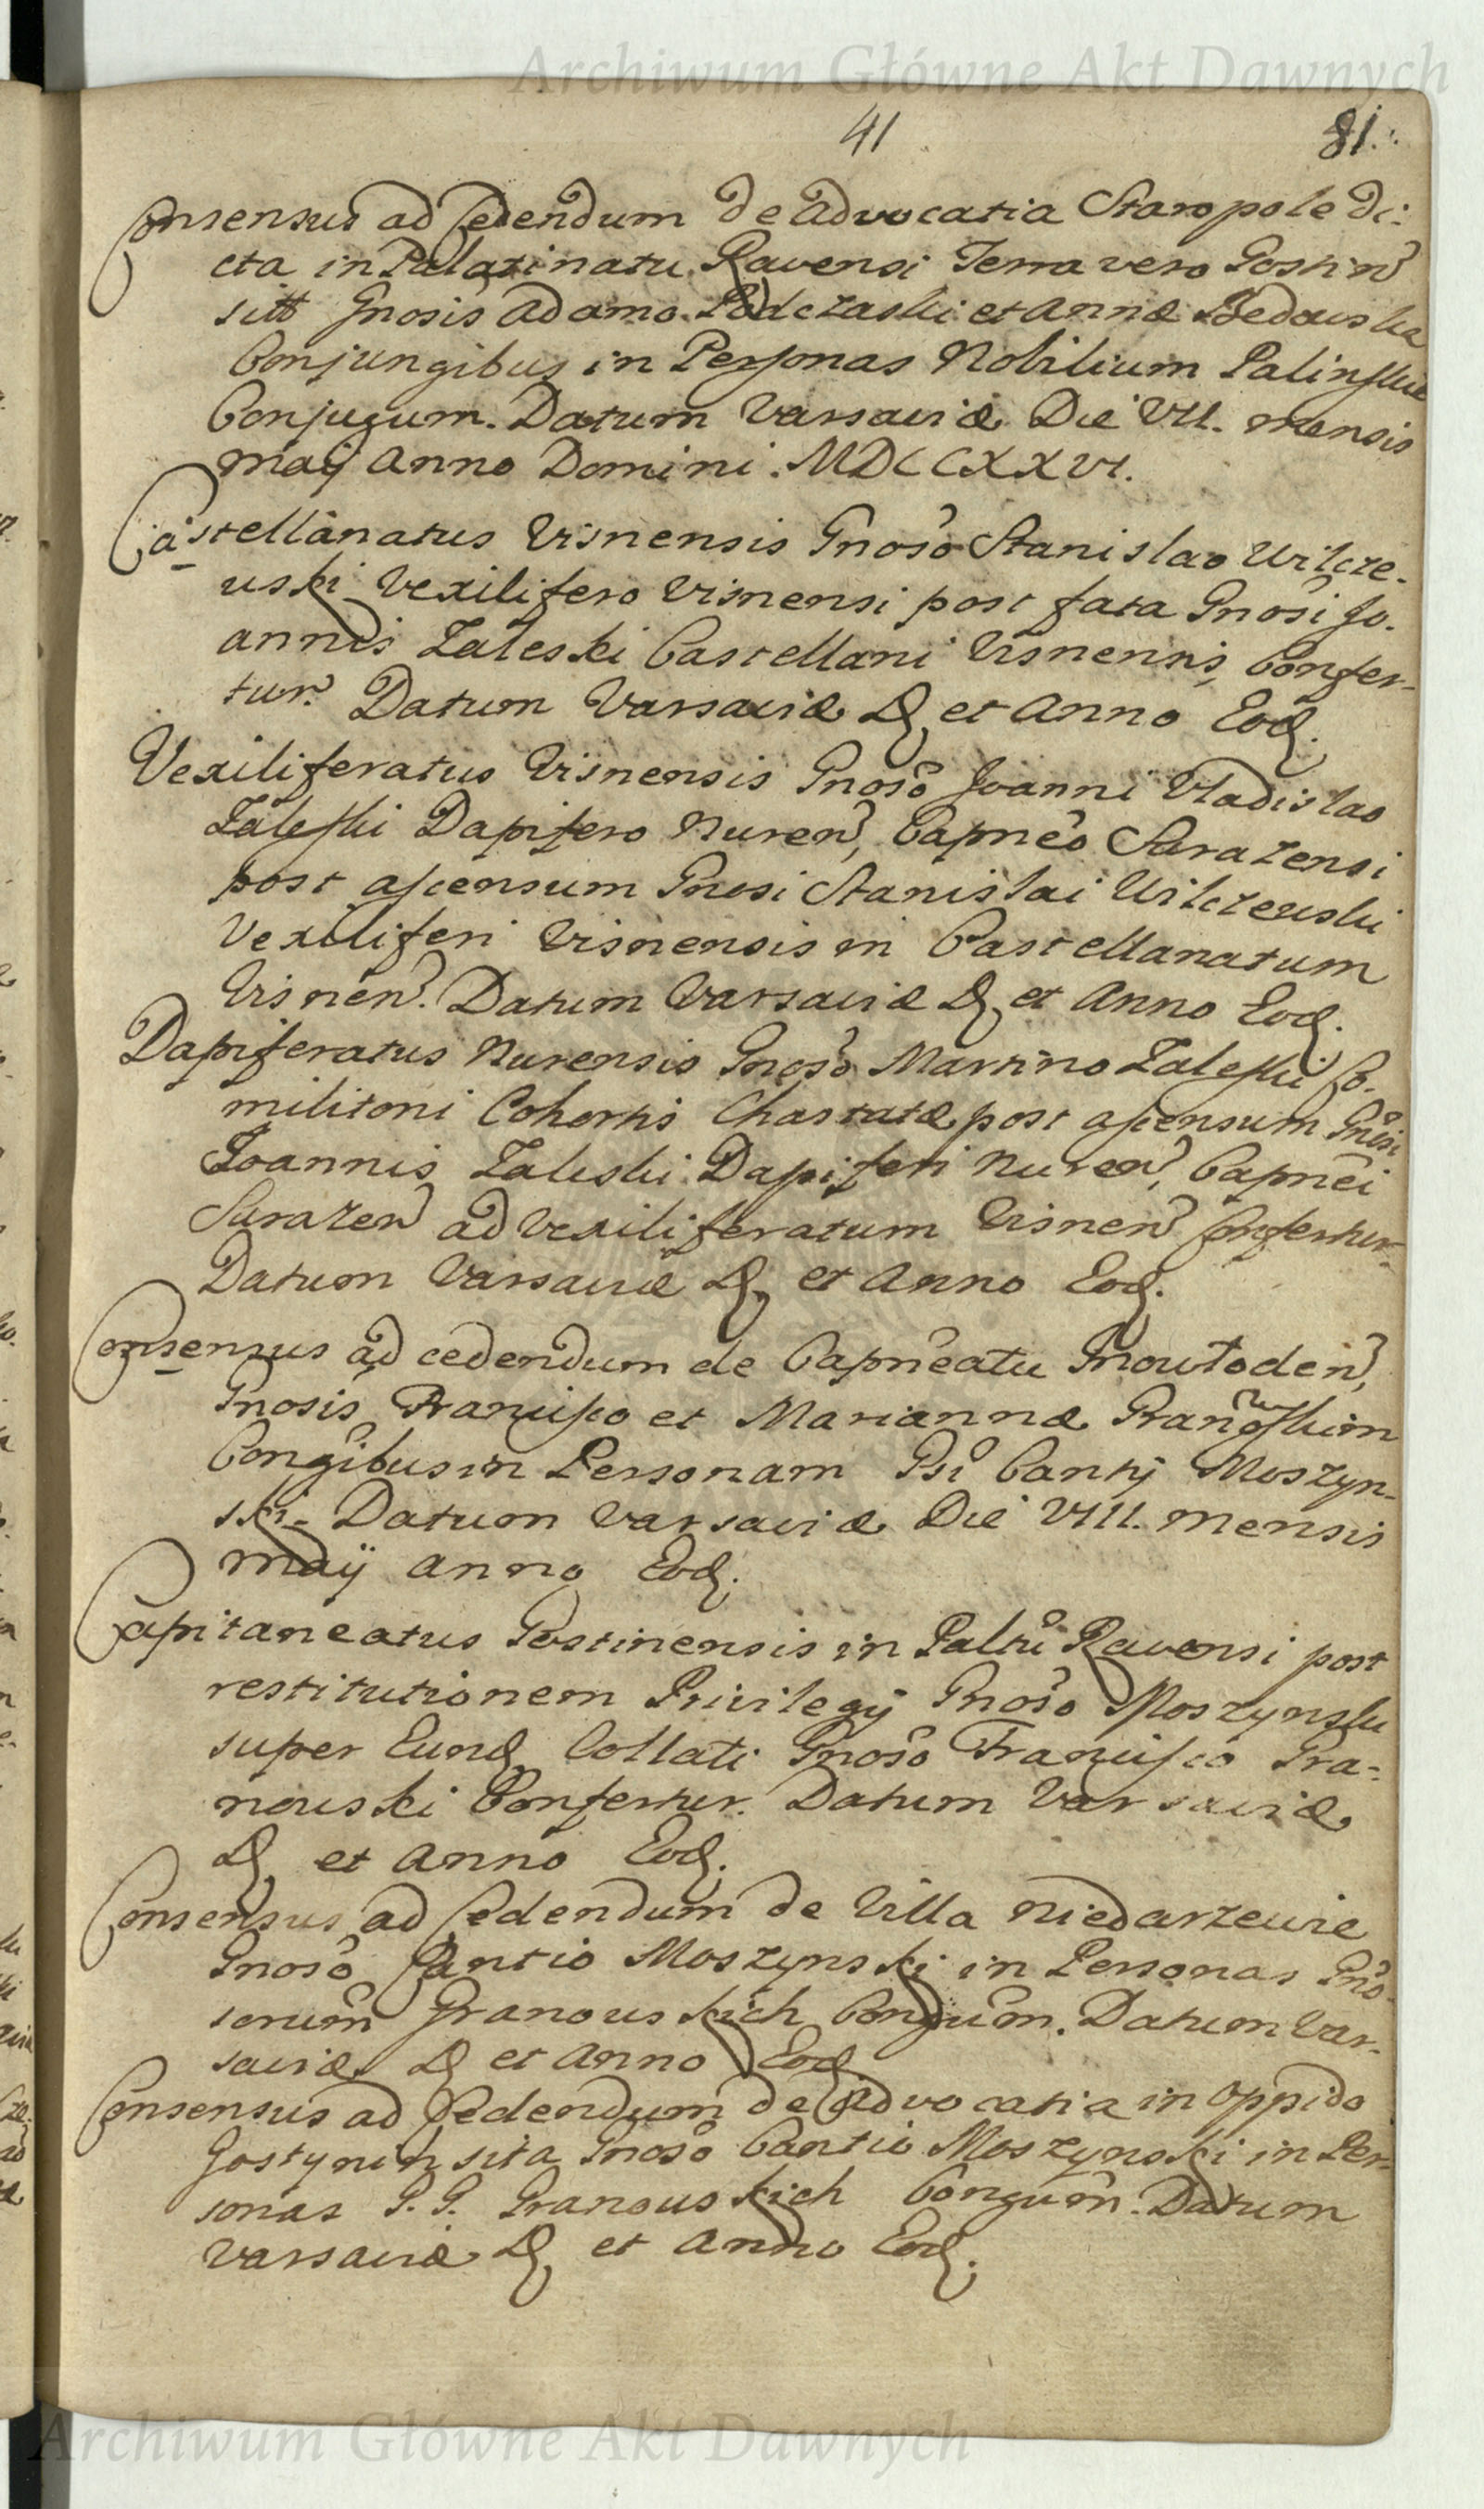 Archiwum Główne Akt Dawnych
41
81.
Consensus ad Cedendum de Advocatia Staropole di:
cta in Palatinatu Ravensi Terra vero Gostin
sitt Gnosis Adamo Podczaski et Annæ Bedowska
Conjungibus in Personas Nobilium Palinskie
Conjugum. Datum Varsaviæ Die VII. mensis
maij Anno Domini. MDCCXXVI.
Castellanatus Visnensis Gnoso Stanislao Wilcze-
wski Vexilifero Visnensi post fata Gnosi Jo-
annis Zaleski Castellani Visnensis, Confer-
tur. Datum Varsaviæ D, et Anno Eod.
Vexiliferatus Visnensis Gnoso Joanni Vladislao
Zaleski Dapifero Nuren, Capneo Surazensi
post ascensum Gnosi Stanislai Wilczewski
Vexiliferi Visnensis in Castellanatum
Visnen. Datum Varsaviæ D, et Anno Eod.
Dapiferatus Nurensis Gnoso Martino Zaleski Co-
militoni Cohortis Chastatæ post ascensum Gnosi
Joannis Zaleski Dapiferi Nuren, Capnei
Surazen ad Vexiliferatum Visnen Confertur-
Datum Varsaviæ D, et Anno Eod.
Consensus ad cedendum de Capneatu Gnowłoden,
Gnosis Francisco et Mariannæ Granowskim
Congibus in Personam Gsi Cantij Moszyn-
ski. Datum Varsaviæ Die VIII. mensis
maij anno Eod.
Capitaneatus Gostinensis in Paltu Ravensi post
restitutionem Privilegij Gnoso Moszynski
super Eund, Collati Gnoso Francisco Gra-
nowski Confertur. Datum Varsaviæ
D, et Anno Eod.
Consensus ad Cedendum de Villa Niedarzewie
Gnoso Cantio Moszynski in Personas Gno-
sorum Granowskich Congum. Datum Var-
saviæ D et Anno Eod
Consensus ad Cedendum de Advocatia in oppido
Gostynin sita Gnoso Cantio Moszynski in Per-
sonas G. G. Granowskich Congum. Datum
Varsaviæ D, et Anno Eod.
Archiwum Główne Akt Dawnych